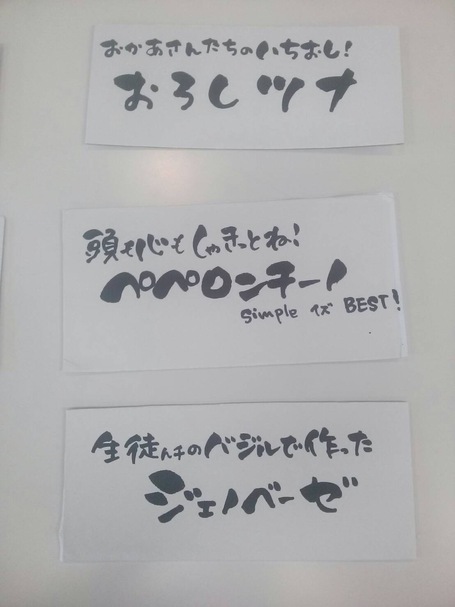 おかあさんたちのいちおし!
おろしツナ
頭も心もしゃきっとね!
ペペロンチーノ
simple イズ BEST!
生徒んチのバジルで作った
ジェノベーゼ